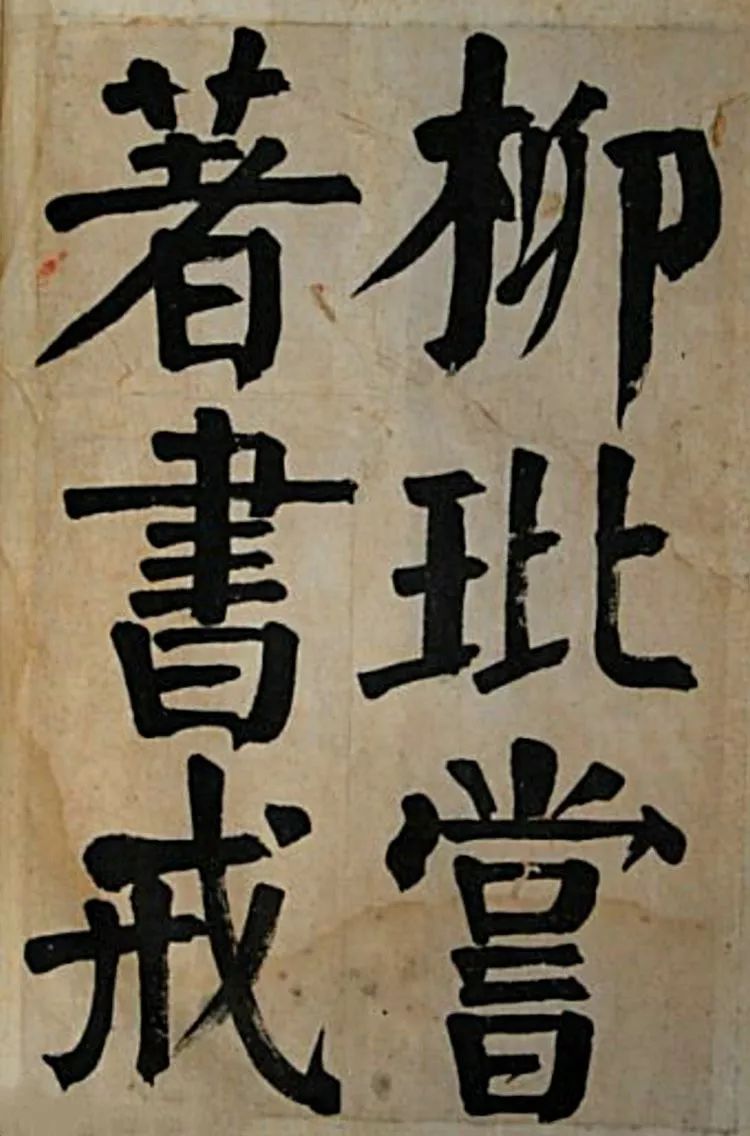 柳玭嘗
著書戒